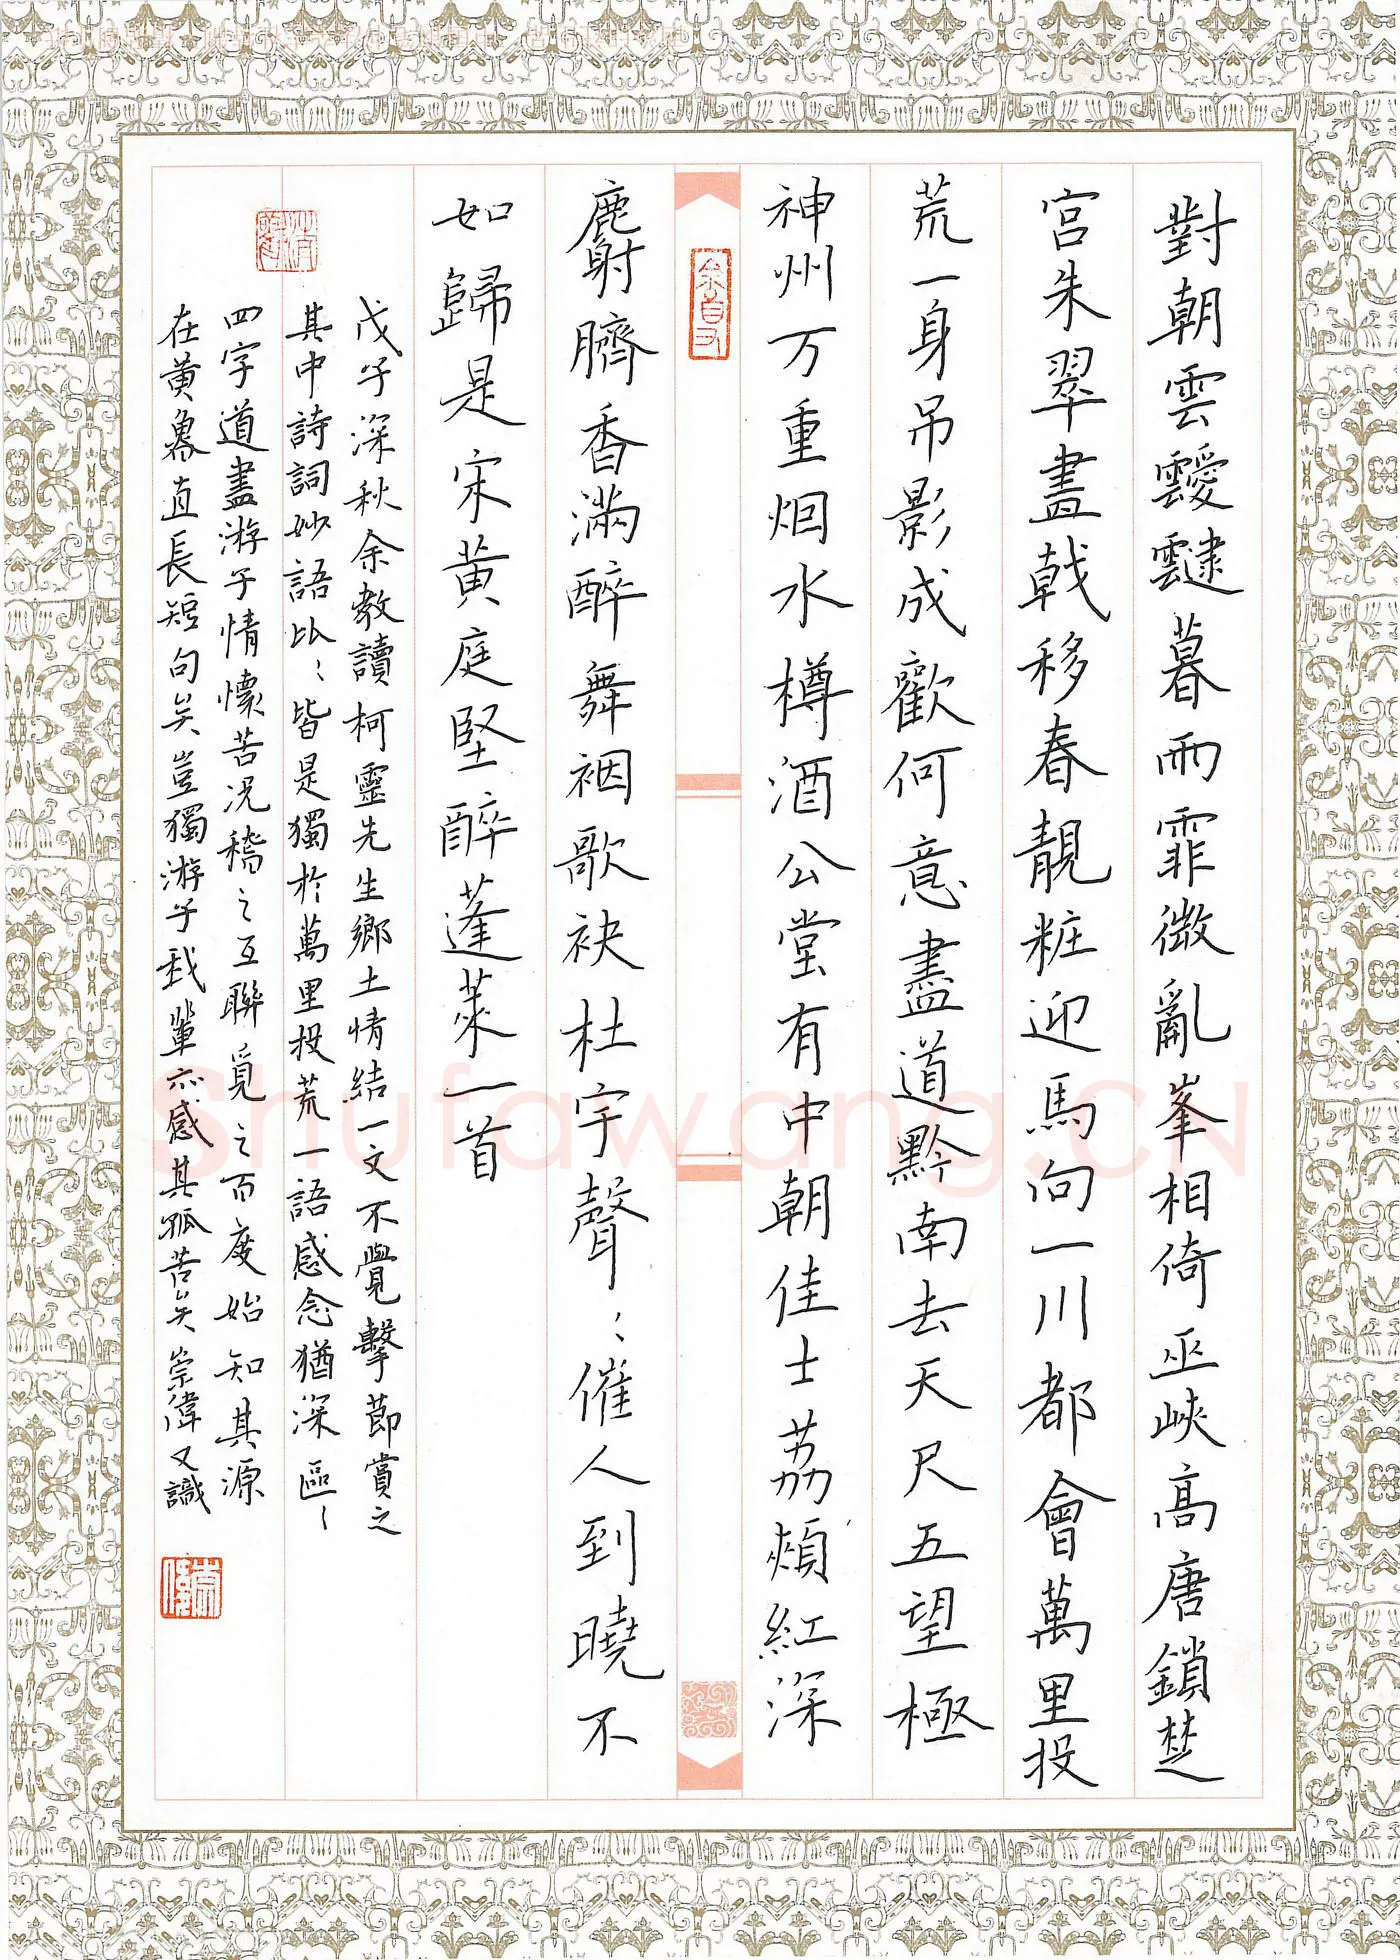 對朝雲靉靆暮雨霏微亂峯相倚巫峽高唐鎖楚
宮朱翠盡戟移春靚粧迎馬向一川都會萬里投
荒一身吊影成歡何意盡道黔南去天尺五望極
神州万重烟水樽酒公堂有中朝佳士荔頰紅深
麝臍香滿醉舞裀歌袂杜宇聲〻催人到曉不
如歸是宋黃庭堅醉蓬萊一首
戊子深秋余教讀柯靈先生鄉土情結一文不覺擊節賞之
其中詩詞妙語比〻皆是獨於萬里投荒一語感念猶深區〻
四字道盡游子情懷苦況稽之互聯覓之百度始知其源
在黃魯直長短句矣豈獨游子我輩亦感其孤苦矣崇偉又識
Shufawang.CN